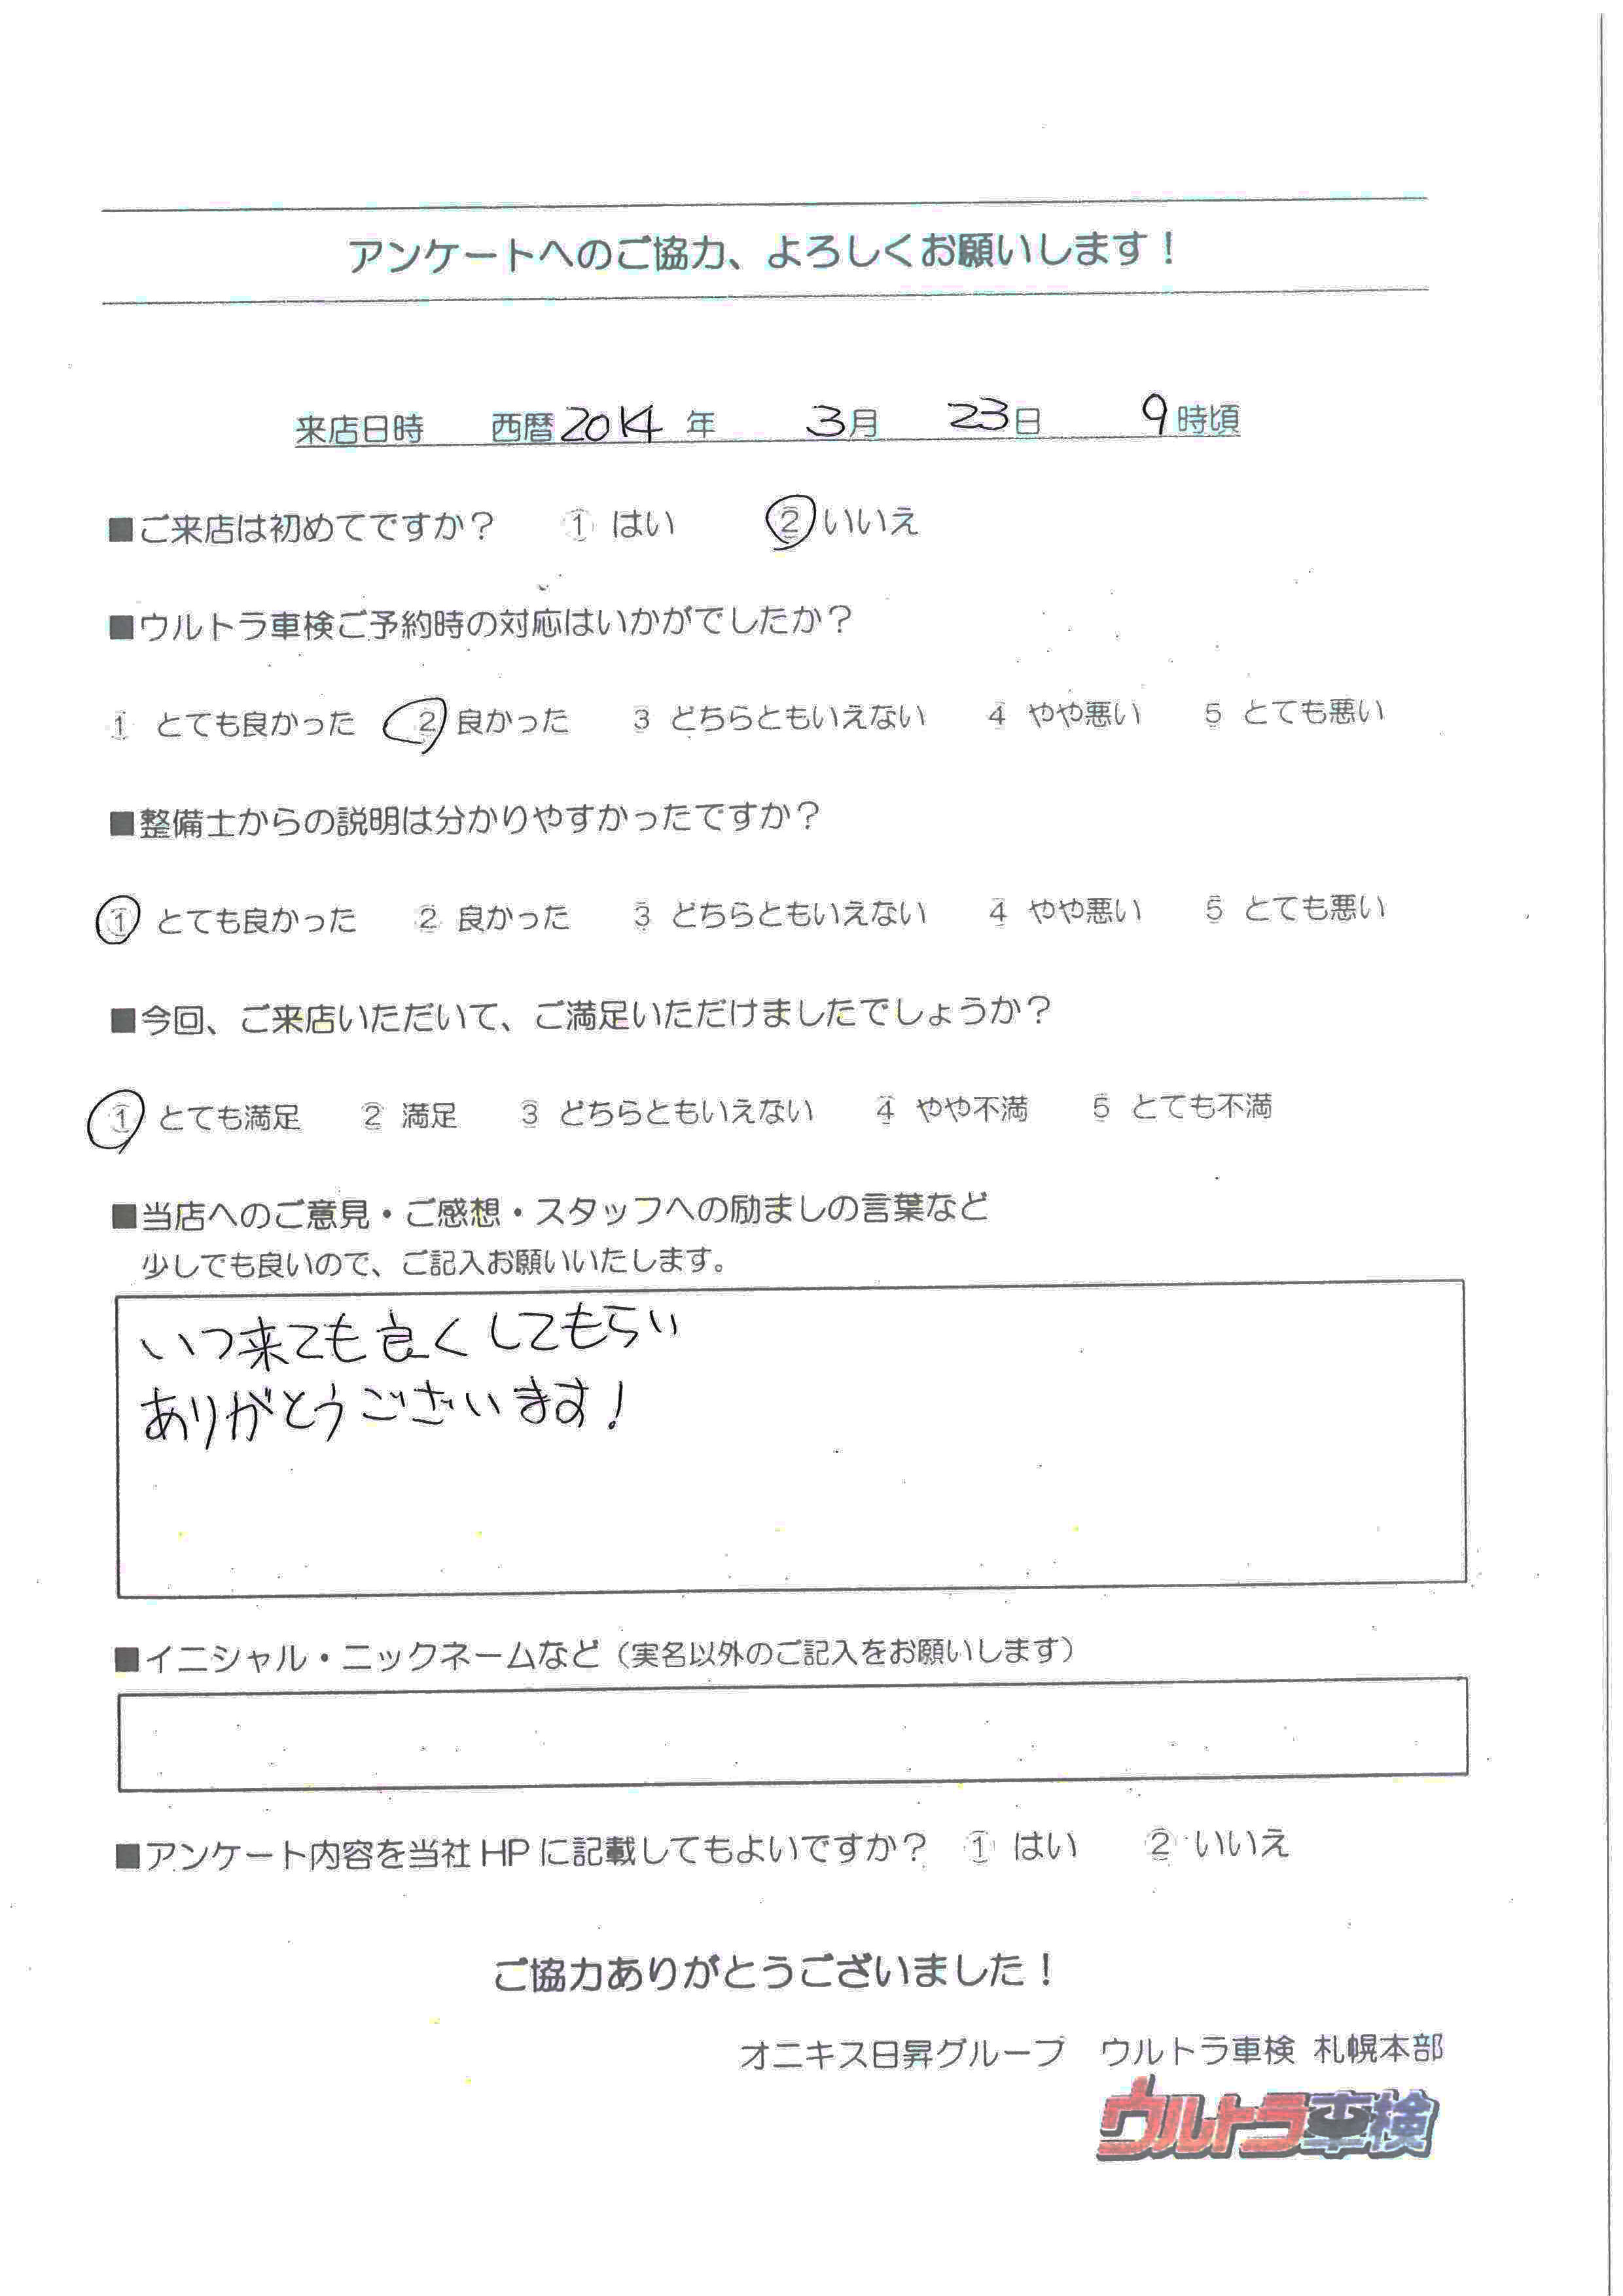 アンケートへのご協力、よろしくお願いします！
来店日時 西暦2014年 3月 23日 9時頃
■ご来店は初めてですか？ ① はい ②いいえ
■ウルトラ車検ご予約時の対応はいかがでしたか？
1 とても良かった ② 良かった 3 どちらともいえない 4 やや悪い 5 とても悪い
■整備士からの説明は分かりやすかったですか？
① とても良かった 2 良かった 3 どちらともいえない 4 やや悪い 5 とても悪い
■今回、ご来店いただいて、ご満足いただけましたでしょうか？
① とても満足 2 満足 3 どちらともいえない 4 やや不満 5 とても不満
■当店へのご意見・ご感想・スタッフへの励ましの言葉など
少しでも良いので、ご記入お願いいたします。
いつ来ても良くしてもらい
ありがとうございます!
■イニシャル・ニックネームなど（実名以外のご記入をお願いします）
■アンケート内容を当社HPに記載してもよいですか？ ① はい ② いいえ
ご協力ありがとうございました！
オニキス日昇グループ ウルトラ車検 札幌本部
ウルトラ車検